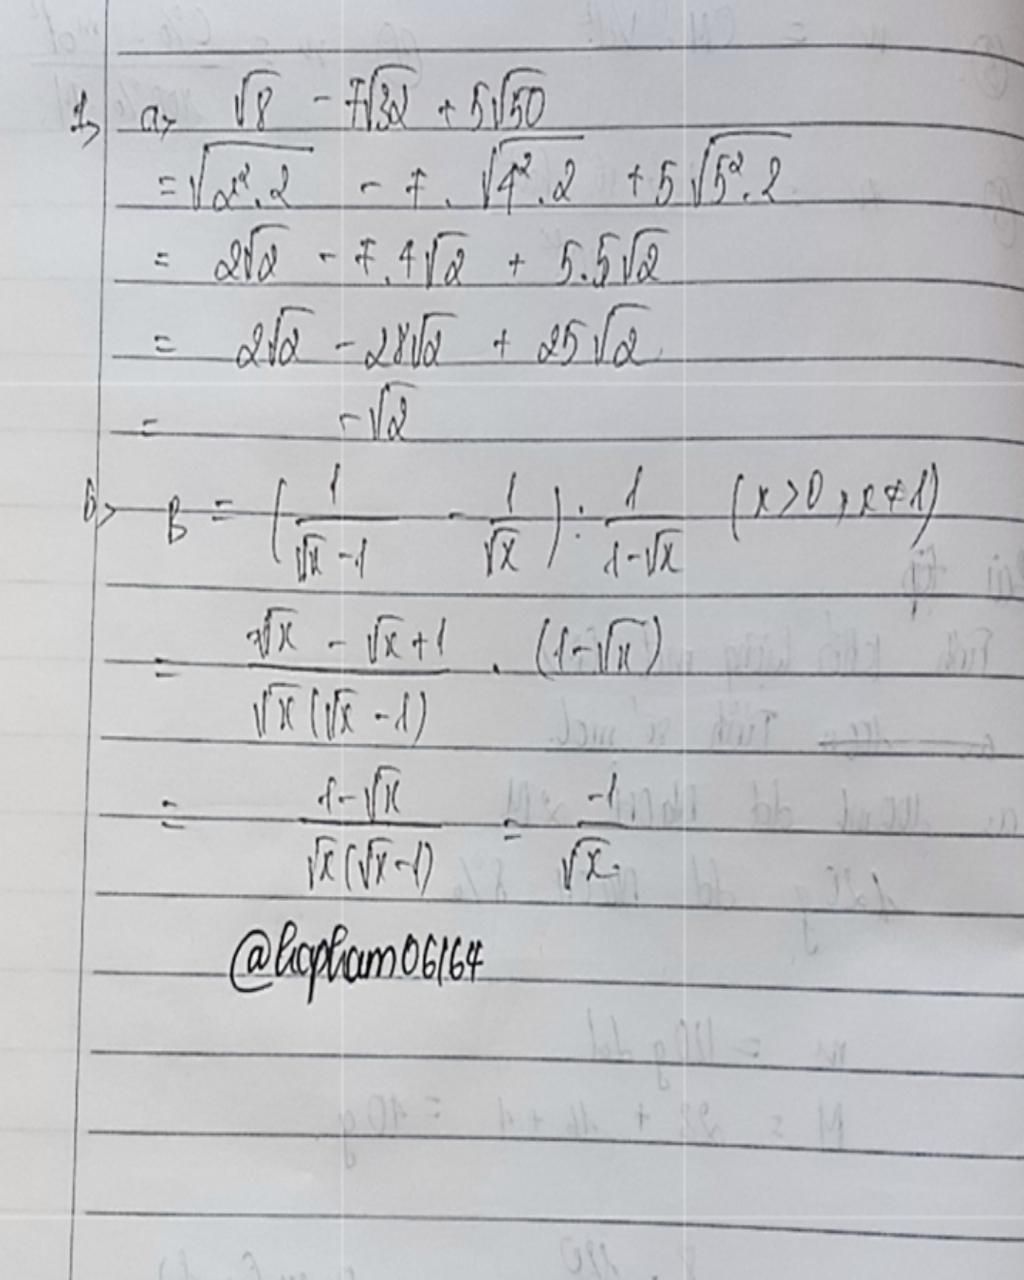 1) a) √8 - 7√32 + 5√50
= √(2².2) - 7. √(4².2) + 5√(5².2)
= 2√2 - 7.4√2 + 5.5√2
= 2√2 - 28√2 + 25√2
= -√2
b) B = (1/(√x-1) - 1/√x) : 1/(1-√x) (x>0, x≠1)
= (√x - √x+1)/(√x(√x-1)) . (1-√x)
= (1-√x)/(√x(√x-1)) = -1/√x.
@hapham06164